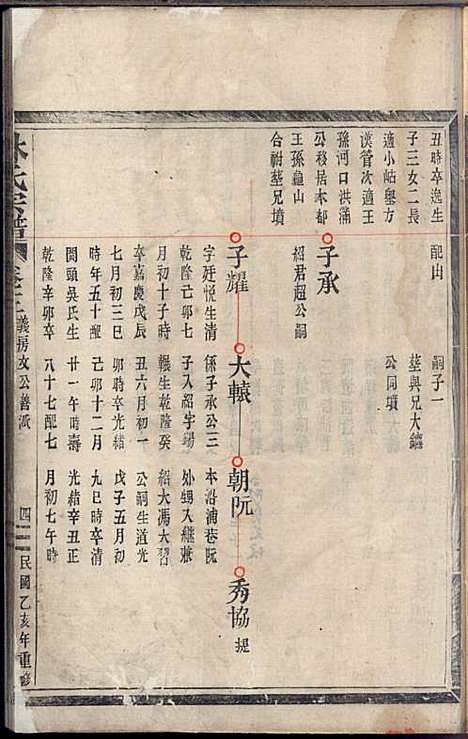 丑時卒逸生
子三女二長
適小岵壟方
漢管次適王
孫河口洪滿
公移居木都
王孫龜山
合祔塟兄墳
配山
子承
紹君超公嗣
嗣子一
塟與兄大鏞
公同墳
子耀
字廷悅生清
乾隆己卯七
月初十子時
卒嘉慶戊辰
七月初三巳
時年五十配
閔頭吳氏生
乾隆辛卯卒
大轅
係子承公三
子入紹字瑒
輾生乾隆癸
丑六月初一
卯時卒光緒
己卯十二月
廿一午時壽
八十七配七
朝阮
本沿浦巷阮
外甥入繼兼
紹大馮大習
公嗣生道光
戊子五月初
九巳時卒清
光緒辛丑正
月初七午時
秀協 提
林氏宗譜
義房文公善派
四
民國乙亥年重修